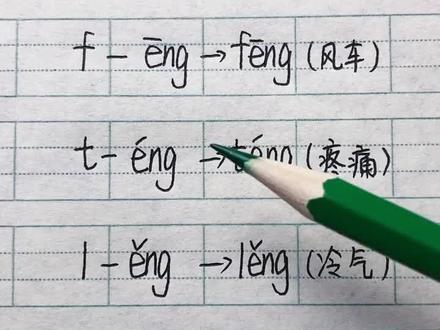 f – ēng → fēng (风车)
t – éng → téng (疼痛)
l – ěng → lěng (冷气)